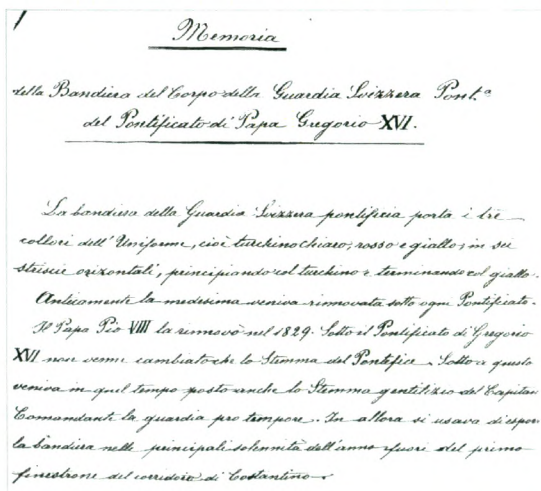 Memoria
della Bandiera del Corpo della Guardia Svizzera Pont.a
del Pontificato di Papa Gregorio XVI.
La bandiera della Guardia Svizzera pontificia porta i tre
collori dell'Uniforme, cioè turchino chiaro, rosso e giallo, in sei
striscie orizontali, principiando col turchino e terminando col giallo.
Anticamente la medesima veniva rinnovata sotto ogni Pontificato.
Il Papa Pio VIII la rinnovò nel 1829. Sotto il Pontificato di Gregorio
XVI non venne cambiato che lo Stemma del Pontefice. Sotto a questo
veniva in quel tempo posto anche lo Stemma gentilizio del Capitan
Comandante la guardia pro tempore. In allora si usava di espor
la bandiera nelle principali solennità dell'anno fuori del primo
finestrone del corridoio di Costantino.